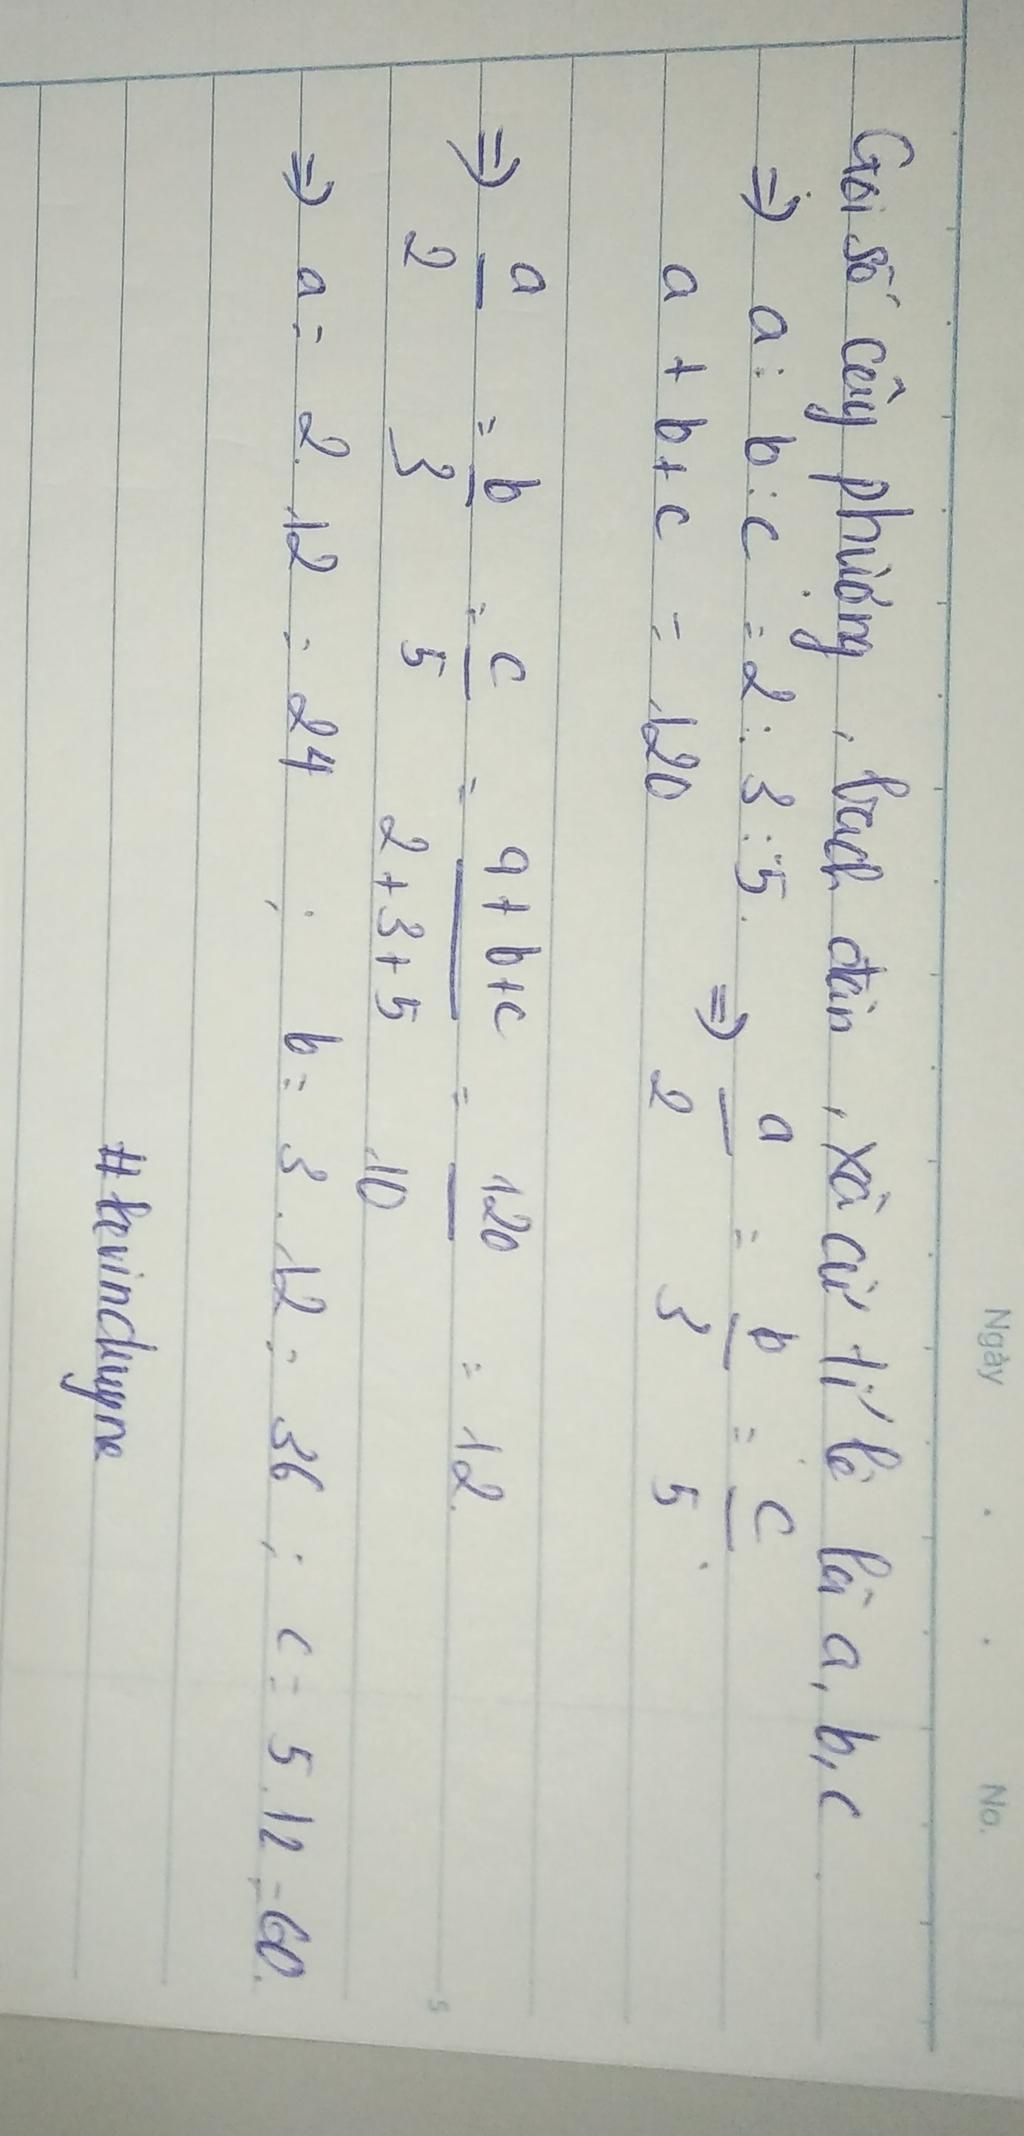 Ngày . . No.
Gọi số cây phượng, bạch đàn, xà cừ tỉ lệ là a, b, c
⇒ a : b : c = 2 : 3 : 5. ⇒ a/2 = b/3 = c/5
a + b + c = 120
⇒ a/2 = b/3 = c/5 = a+b+c/2+3+5 = 120/10 = 12.
⇒ a = 2.12 = 24 ; b = 3.12 = 36 ; c = 5.12 = 60.
#kevinduyne
5